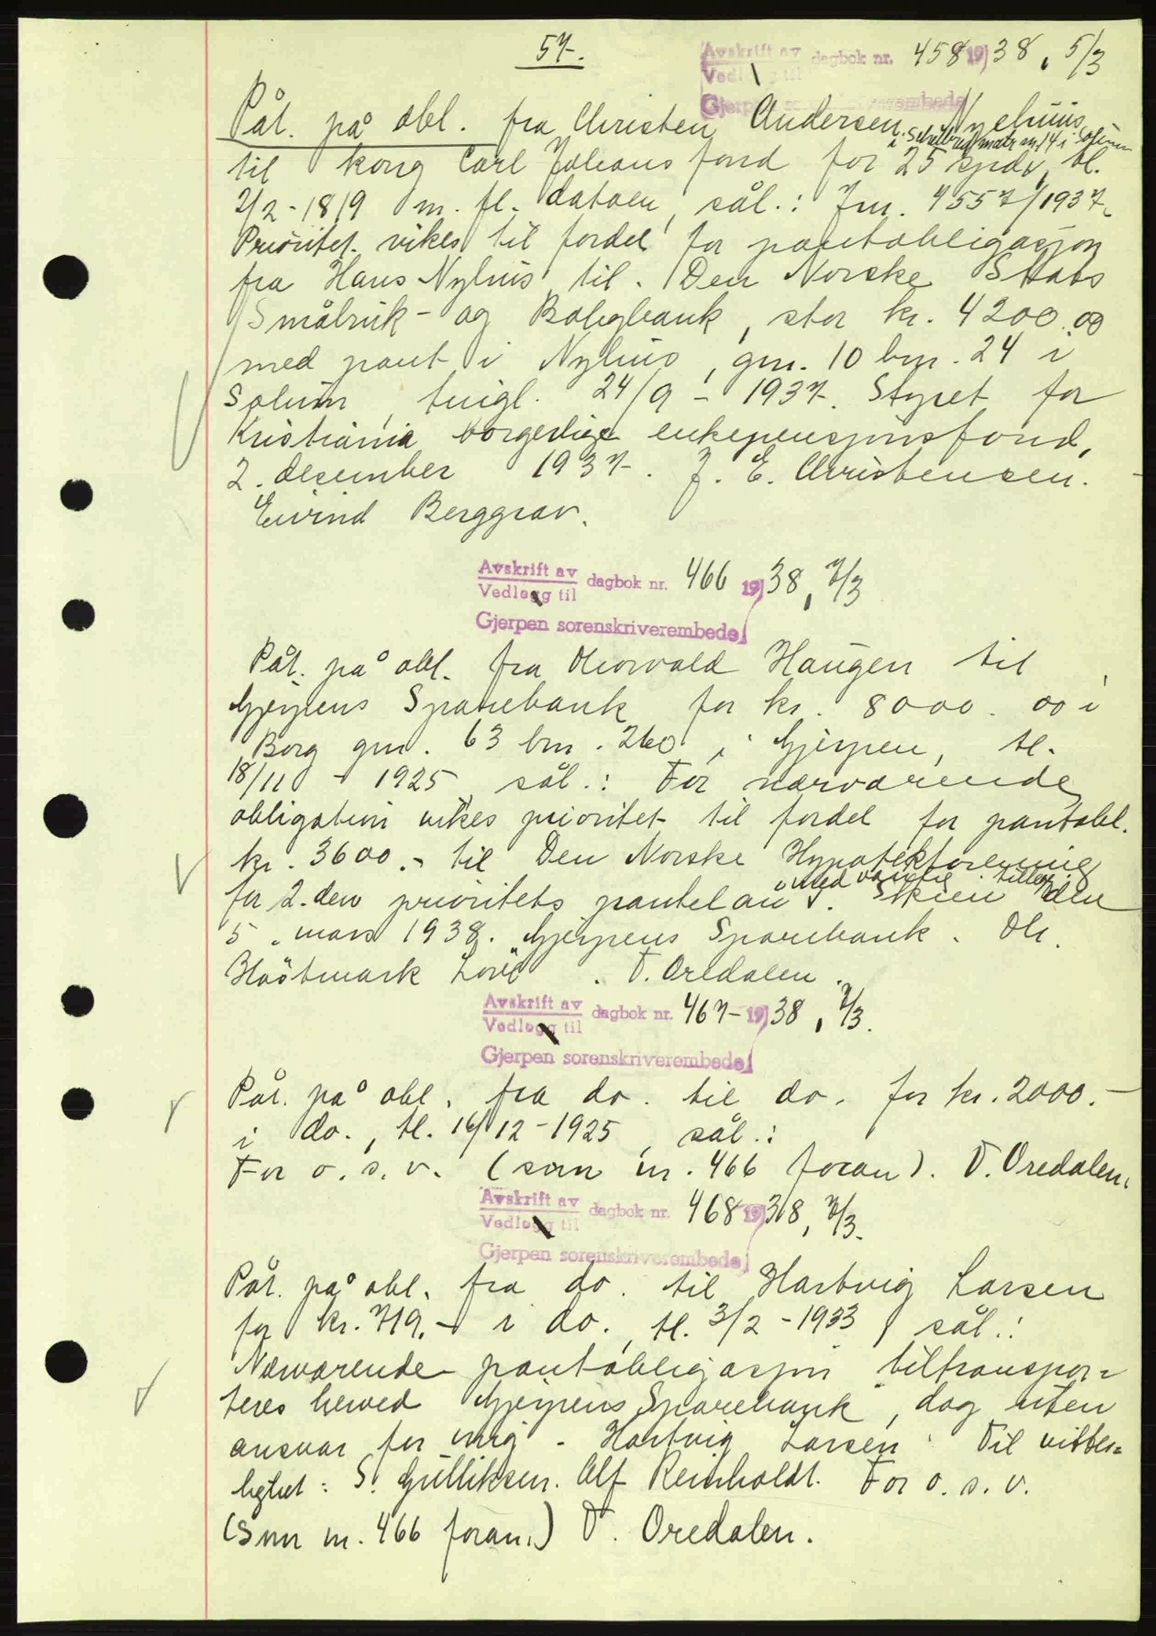 57.
Avskrift av dagbok nr. 458 1938, 5/3
Vedlegg til
Gjerpen sorenskriverembede
Påt. på obl. fra Christen Andersen Nyehuus
i matr nr 14 i Solum
til kong Carl Johans fond for 25 spdr, tl.
2/2-1819 m. fl. datoer, sål.: Jnr. 4557/1937.
Prioritet vikes til fordel for pantobligasjon
fra Hans Nyhus til Den Norske Stats
Småbruk- og Boligbank, stor kr. 4200.00
med pant i Nyhus, gnr. 10 bnr. 24 i
Solum, tingl. 24/9 - 1937. Styret for
Kristiania borgerlige enkepensjonsfond,
2. desember 1937. J. E. Christensen.
Eivind Berggrav.
Avskrift av dagbok nr. 466 1938, 7/3
Vedlegg til
Gjerpen sorenskriverembede
Påt. på obl. fra Thorvald Haugen til
Gjerpens Sparebank for kr. 8000.00 i
Borg gnr. 63 bnr. 260 i Gjerpen, tl.
18/11 - 1925 sål.: For nærværende
obligation vikes prioritet til fordel for pantobl.
kr. 3600.- til Den Norske Hypotekforening
med vanlig tillegg
for 2.den prioritets pantelån. Skien den
5. mars 1938. Gjerpens Sparebank. Chr.
Høstmark . T. Oredalen.
Avskrift av dagbok nr. 467- 1938, 7/3.
Vedlegg til
Gjerpen sorenskriverembede
Påt. på obl. fra do. til do. for kr. 2000.-
i do., tl. 16/12-1925, sål.:
For o. s. v. (som nr. 466 foran). T. Oredalen.
Avskrift av dagbok nr. 468 1938, 7/3.
Vedlegg til
Gjerpen sorenskriverembede
Påt. på obl. fra do. til Hartvig Larsen
for kr. 719.- i do. tl. 3/2-1933, sål.:
Nærværende pantobligasjon tiltranspor=
teres herved Gjerpens Sparebank, dog uten
ansvar for mig. Hartvig Larsen. Til vitter=
lighet: S. Gulliksen. Alf Reinholdt. For o. s. v.
(Som nr. 466 foran.) T. Oredalen.